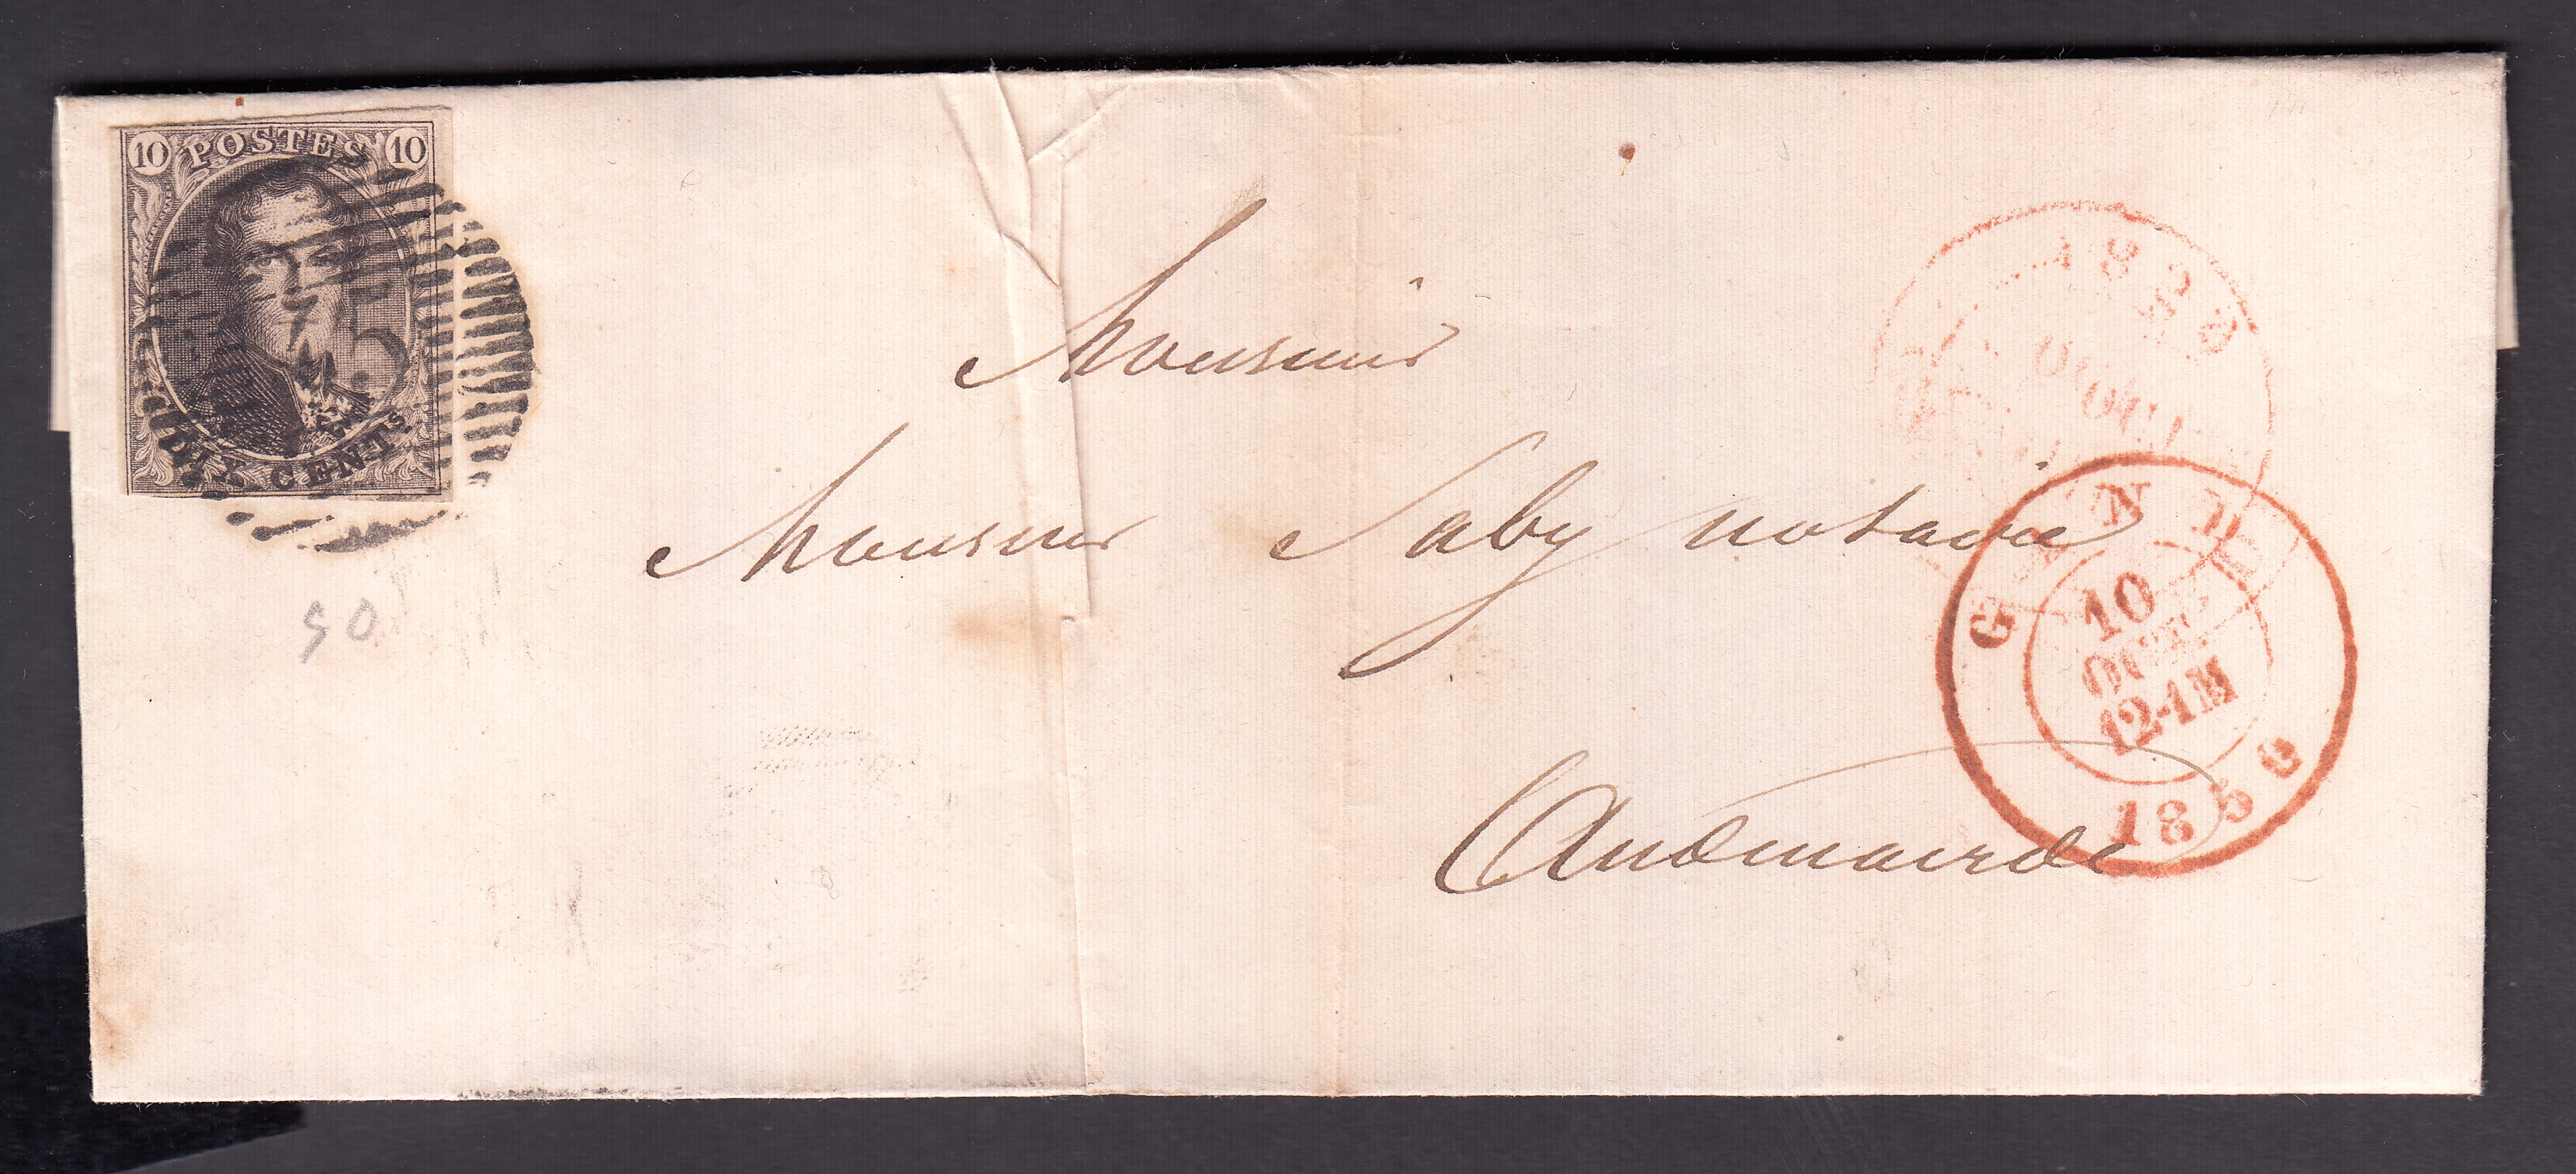 10 POSTES 10
75
DIX CENTS.
90
Monsieur
Monsieur Saby notaire
Audenaerde
GAND
10
OCT
12-1M
1856